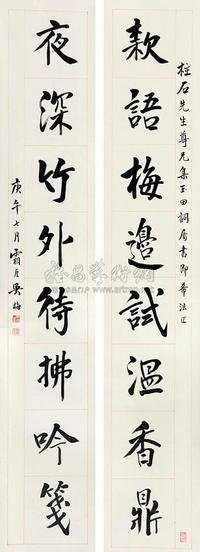 柱石先生尊兄集玉田詞屬書即希法正
款語梅邊試溫香鼎
夜深竹外待拂吟箋
庚午七月霜厓吳梅